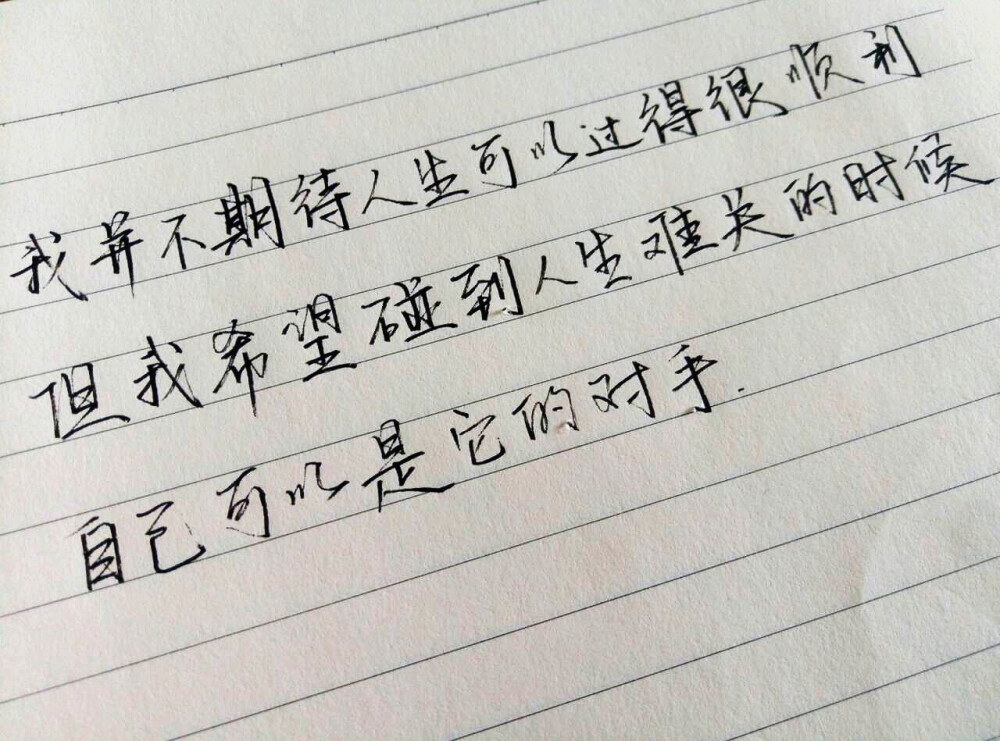 我并不期待人生可以过得很顺利
但我希望碰到人生难关的时候
自己可以是它的对手.